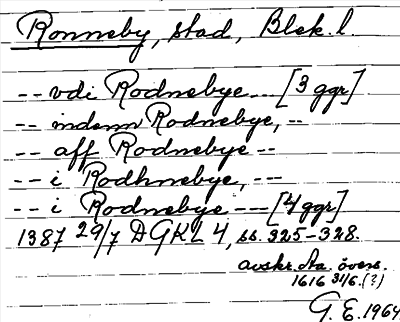 Ronneby, stad, Blek. l.
-- vdi Rodnebye --- [3 ggr]
-- indenn Rodnebye, --
-- aff Rodnebye --
-- i Rodhnebye, ---
-- i Rodnebye --- [4 ggr]
1387 29/7 DGKL 4, ss. 325-328.
avskr. öovers.
1616 31/6. (?)
G. E. 1964